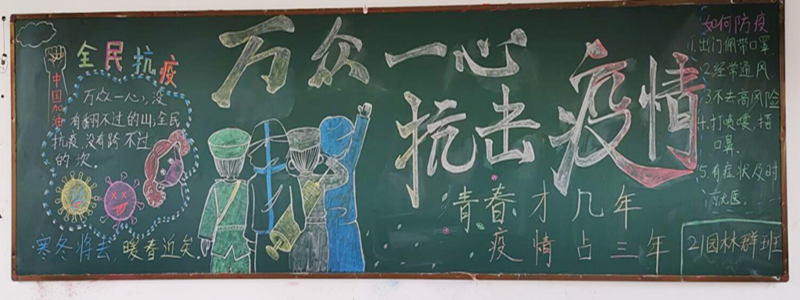 全民抗疫
中国加油
万众一心，没
有翻不过的山，全民
抗疫，没有跨不过
的坎。
寒冬将去，暖春近矣。
万众一心
抗击疫情
青春才几年
疫情占三年
如何防疫
1.出门佩带口罩
2.经常通风
3.不去高风险
4.打喷嚏，捂
口鼻。
5.有症状及时
就医。
21园林群班